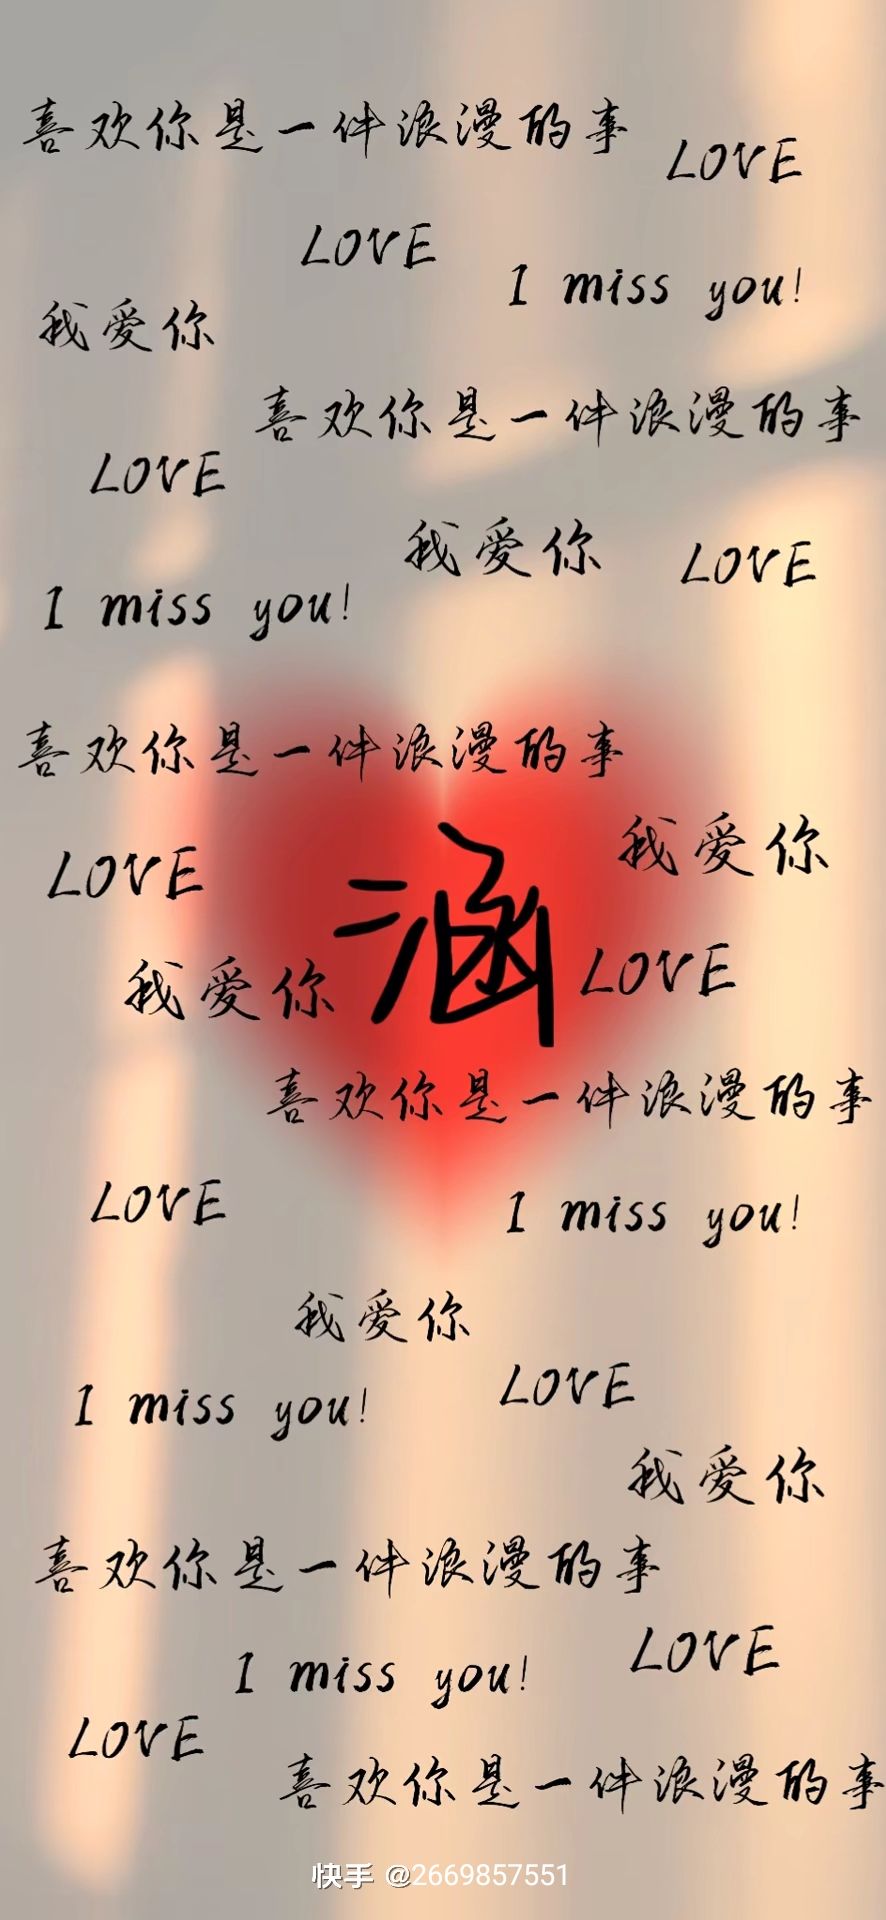 喜欢你是一件浪漫的事
LOVE
LOVE
I miss you!
我爱你
喜欢你是一件浪漫的事
LOVE
我爱你
LOVE
I miss you!
喜欢你是一件浪漫的事
我爱你
LOVE
涵
我爱你
LOVE
喜欢你是一件浪漫的事
LOVE
I miss you!
我爱你
LOVE
I miss you!
我爱你
喜欢你是一件浪漫的事
LOVE
I miss you!
LOVE
喜欢你是一件浪漫的事
快手 @2669857551